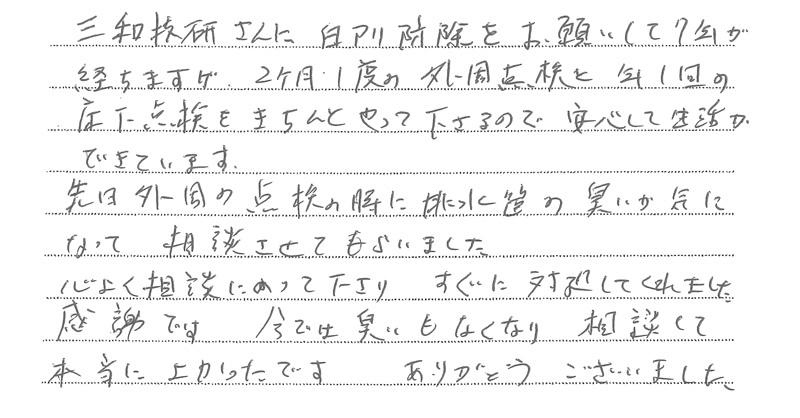 三和技研さんに 白アリ防除をお願いして7年が
経ちますが、2ケ月1度の外周点検と年1回の
床下点検をきちんとやって下さるので安心して生活が
できています。
先日外周の点検の時に排水管の臭いが気に
なって 相談させてもらいました
心よく相談にのって下さり すぐに対処してくれました
感謝です 今では臭いもなくなり 相談して
本当によかったです ありがとうございました。